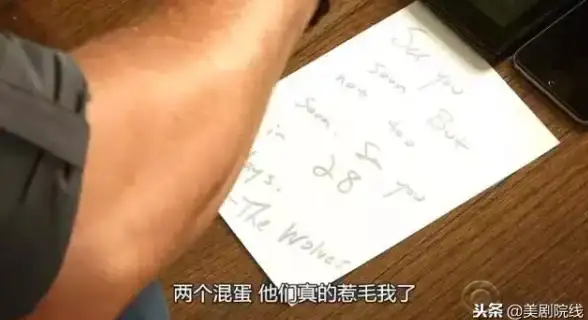 See you
soon But
not too
soon. See you
in 28
-The Wolves
两个混蛋 他们真的惹毛我了
头条 @美剧院线